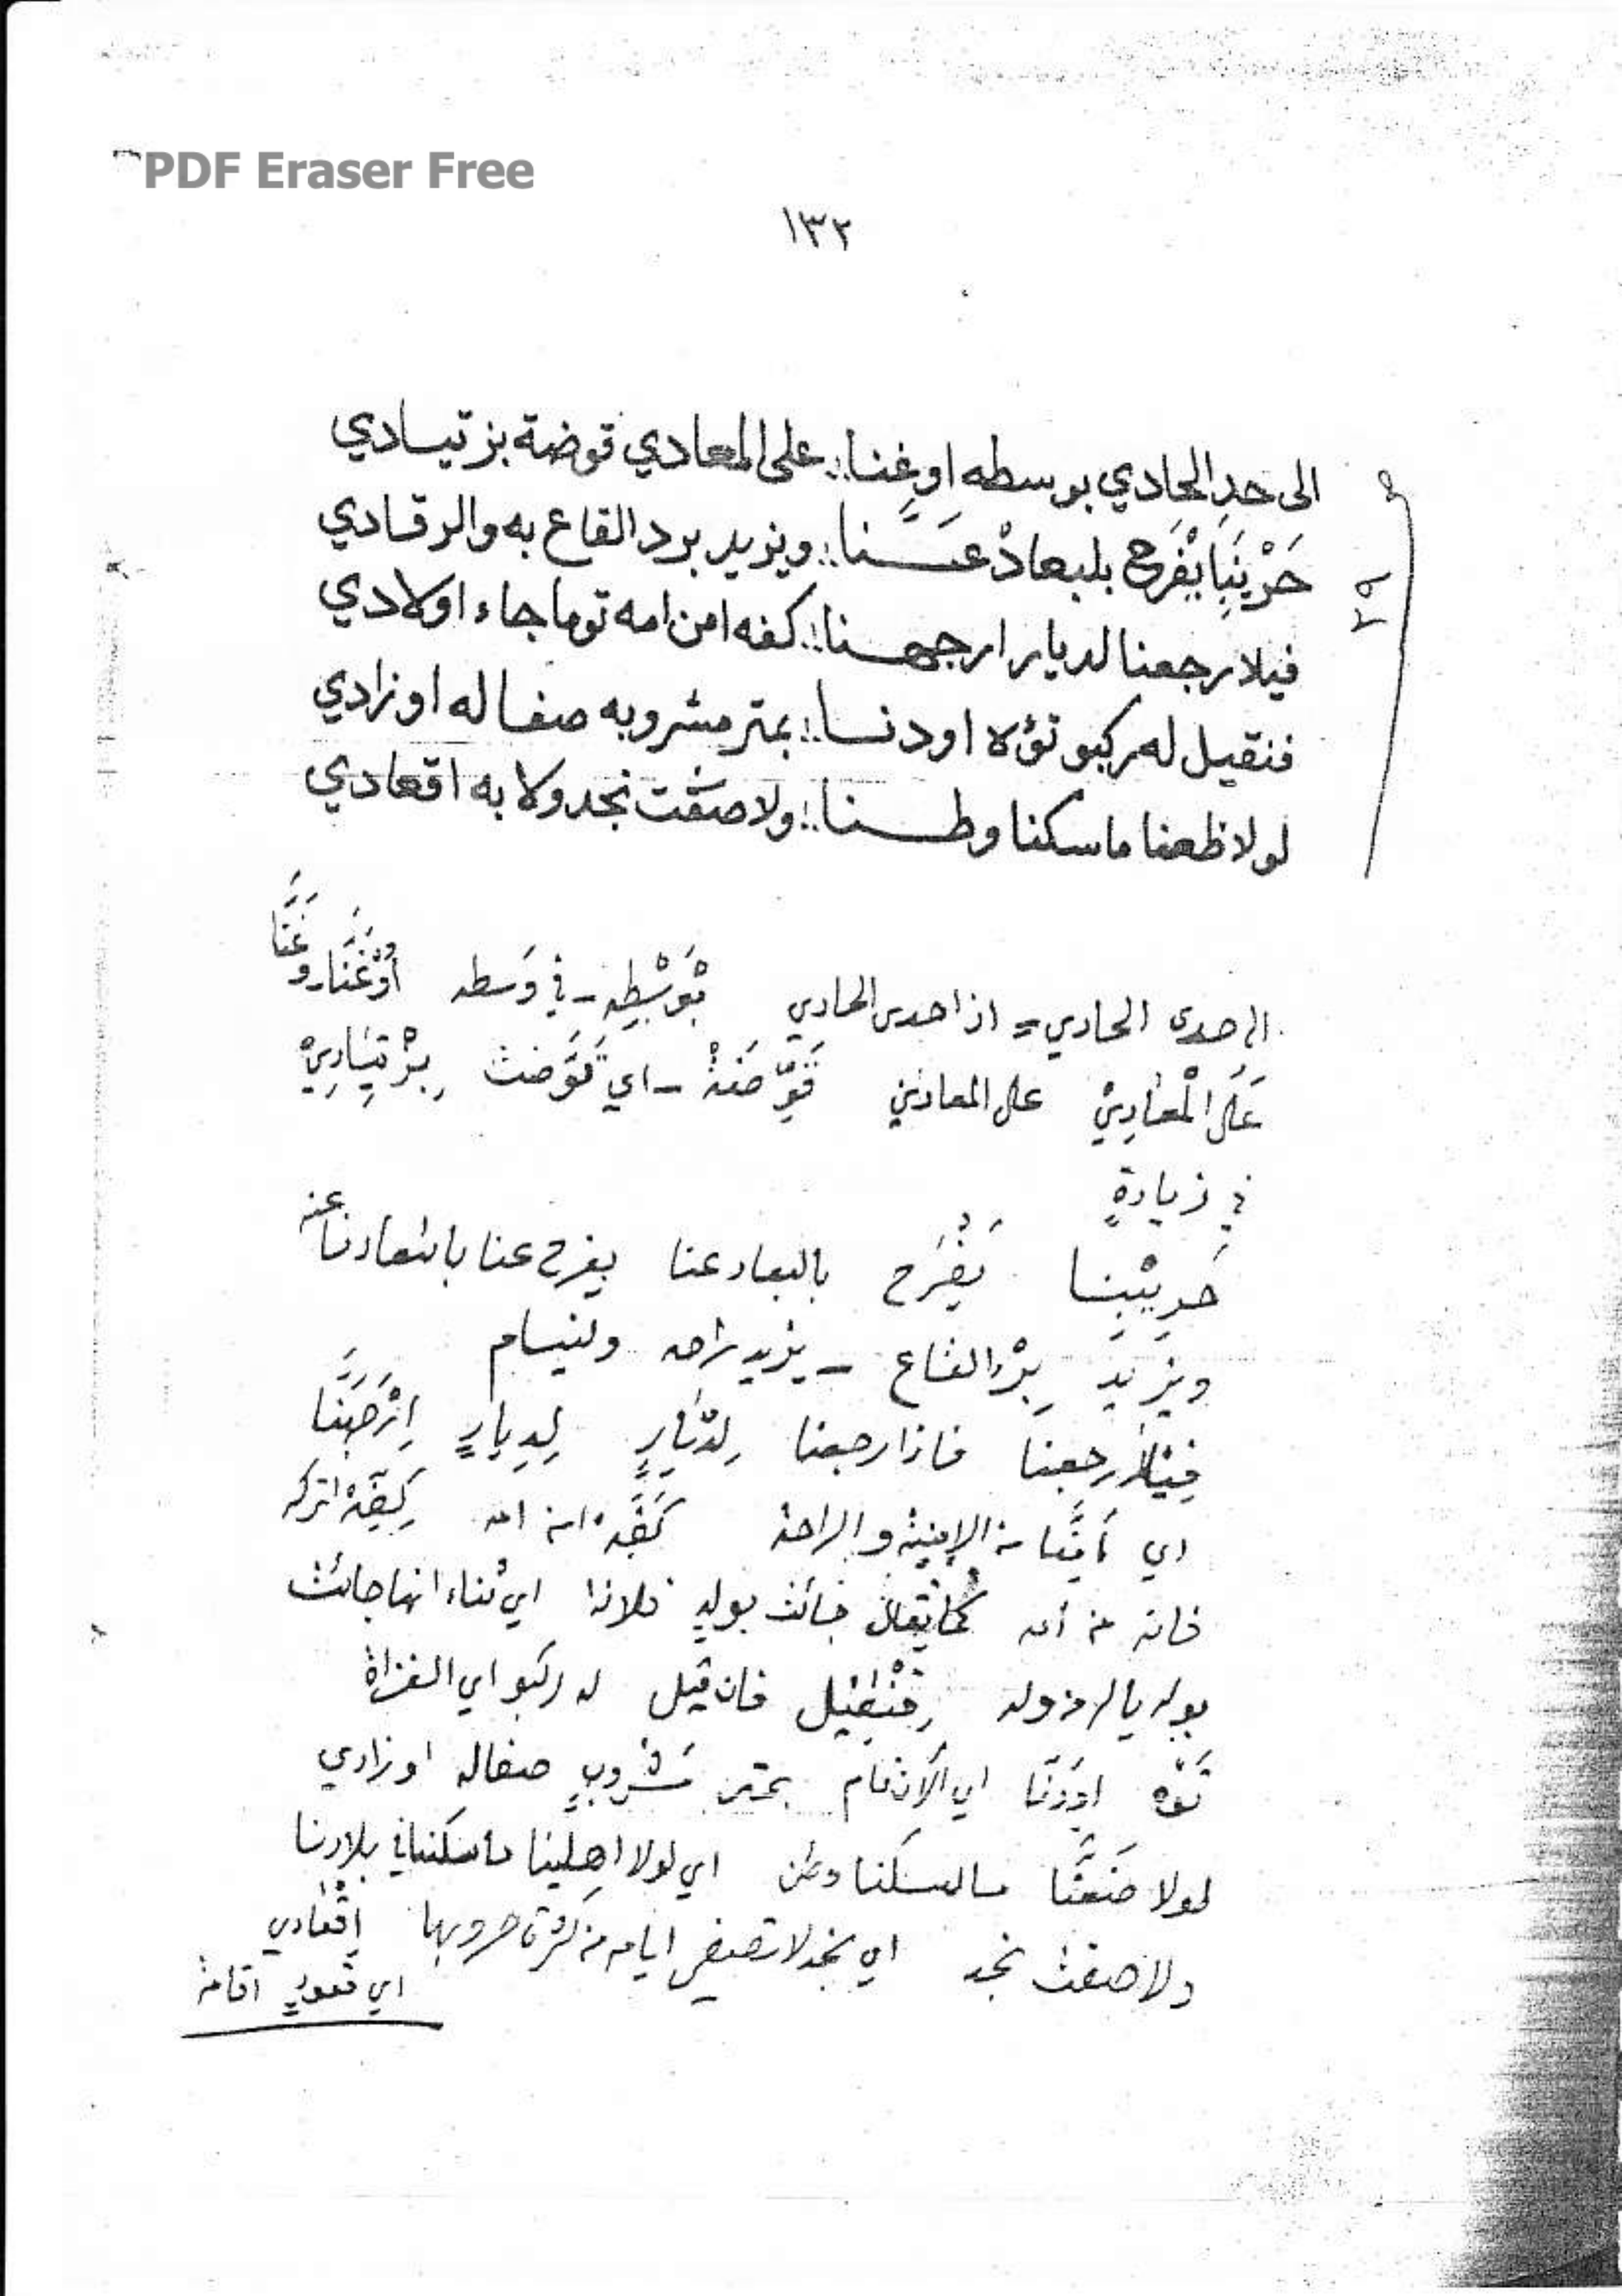 PDF Eraser Free
١٣٢
الى حدِ الحادي بوسطه اوغنا :: على المعادي قوضة بزتيادي
حَرْيبَنا يفْرَح بلبعادْ عَنا :: ويزيد برد القاع به والرقادي
فيلا رجعنا لديار ارجهنا :: كفه امن امه توما جاء اولادي
فنقيل له ركبو تؤه اودنا :: بمتر مشروبه صفا له اوزادي
لولا ظعنا ما سكنا وطنا :: ولا صفت نجد ولا به اقعادي
الى حدى الحادي = اذا حدى الحادي بْوَسْطِه - في وَسطه أوْغَنَّا - وغَنَّا
عَلَى الْمعَادِيْ على المعادي قَوِّضَةْ - اي تَقَوَّضت بِزْتِيَادِيْ
في زيادةٍ
حَرِيْبِنا يَفْرَح بالبعاد عنا يفرح عنا بابتعادنا عنه
ويزيد بَرْد القاع - يزيد راحه ولنيام
فِيْلَا رجعنا فاذا رجعنا لِدْيَارٍ لِدِيارٍ اِرْجَهَنَّا
اي من الامنية والراحة كَفَّهْ امن امه
فانه من امه كما يقال جائت بولدٍ فلانة اي اثناء انها جائت
بولد فِنْقِيْل فان قيل له ركبو اي الغزاة
تَوّه اودَنَّا اي الآن بمتر مَشْروبٍ صفاله اوزادي
لولا ضَعَنَّا ما سكنا وطن اي لولا اهلينا ما سكنا في بلادنا
ولا صفت نجد اي نجد لا تصفى ايامه من كثرة حروبها اِقْعَادي
اي قعودٍ اقامة